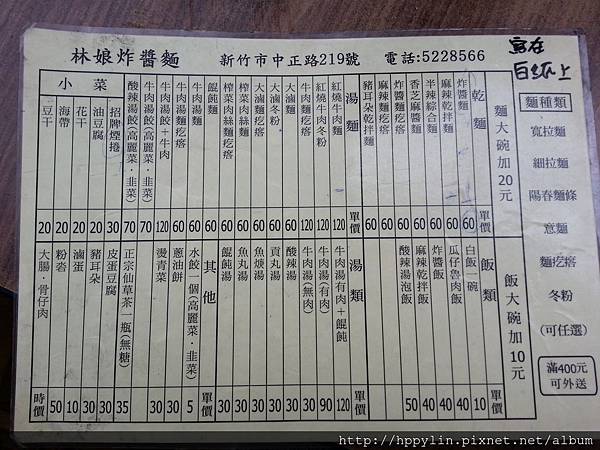 林娘炸醬麵 新竹市中正路219號 電話:5228566
寫在
白紙上
麵種類
寬拉麵
細拉麵
陽春麵條
意麵
麵疙瘩
冬粉
(可任選)
滿400元
可外送
麵大碗加20元
飯大碗加10元
乾麵 單價
炸醬麵 60
麻辣乾拌麵 60
半辣綜合麵 60
香芝麻醬麵 60
炸醬麵疙瘩 60
麻辣麵疙瘩 60
豬耳朵乾拌麵 60
湯麵 單價
紅燒牛肉麵 120
紅燒牛肉冬粉 120
大滷麵 60
大滷冬粉 60
大滷麵疙瘩 60
榨菜肉絲麵 60
榨菜肉絲麵疙瘩 60
餛飩麵 60
牛肉湯麵 60
牛肉湯麵疙瘩 60
牛肉湯餃+牛肉 120
牛肉湯餃(高麗菜.韭菜) 70
酸辣湯餃(高麗菜.韭菜) 70
小菜
招牌煙捲 30
油豆腐 20
花干 20
海帶 20
豆干 20
飯類 單價
白飯一碗 10
瓜仔魯肉飯 40
炸醬飯 40
麻辣乾拌飯 40
酸辣湯泡飯 50
湯類 單價
牛肉湯有肉+餛飩 120
牛肉湯(有肉) 90
牛肉湯(無肉) 30
酸辣湯 30
貢丸湯 30
魚焿湯 30
魚丸湯 30
餛飩湯 30
其他 單價
水餃一個(高麗菜.韭菜) 5
蔥油餅 30
燙青菜 30
正宗仙草茶一瓶(無糖) 35
皮蛋豆腐 30
豬耳朵 30
滷蛋 10
粉 50
大腸.骨仔肉 時價
http://hppylin.pixnet.net/album